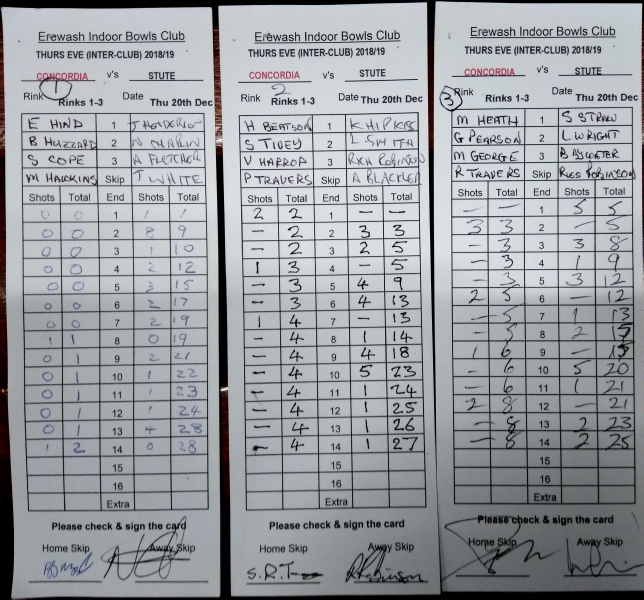 Erewash Indoor Bowls Club
THURS EVE (INTER-CLUB) 2018/19
CONCORDIA v's STUTE
Rink 1 Rinks 1-3 Date Thu 20th Dec
E HIND 1 J HENDERSON
B HUZZARD 2
S COPE 3 A FLETCHER
M HAWKINS Skip J WHITE
Shots Total End Shots Total
0 0 1 1 1
0 0 2 8 9
0 0 3 1 10
0 0 4 2 12
0 0 5 3 15
0 0 6 2 17
0 0 7 2 19
1 1 8 0 19
0 1 9 2 21
0 1 10 1 22
0 1 11 1 23
0 1 12 1 24
0 1 13 4 28
1 2 14 0 28
15
16
Extra
Please check & sign the card
Home Skip Away Skip
Erewash Indoor Bowls Club
THURS EVE (INTER-CLUB) 2018/19
CONCORDIA v's STUTE
Rink 2 Rinks 1-3 Date Thu 20th Dec
H BEATSON 1 K HIPKISS
S TIVEY 2 L SMITH
V HARROP 3 RICH ROBINSON
P TRAVERS Skip A BLACKLER
Shots Total End Shots Total
2 2 1 - -
- 2 2 3 3
- 2 3 2 5
1 3 4 - 5
- 3 5 4 9
- 3 6 4 13
1 4 7 - 13
- 4 8 1 14
- 4 9 4 18
- 4 10 5 23
- 4 11 1 24
- 4 12 1 25
- 4 13 1 26
- 4 14 1 27
15
16
Extra
Please check & sign the card
Home Skip Away Skip
S.R.T
Erewash Indoor Bowls Club
THURS EVE (INTER-CLUB) 2018/19
CONCORDIA v's STUTE
Rink 3 Rinks 1-3 Date Thu 20th Dec
M HEATH 1 S STRAW
G PEARSON 2 L WRIGHT
M GEORGE 3 B
R TRAVERS Skip RUSS ROBINSON
Shots Total End Shots Total
- - 1 5 5
3 3 2 - 5
- 3 3 3 8
- 3 4 1 9
- 3 5 3 12
2 5 6 - 12
- 5 7 1 13
- 5 8 2 15
1 6 9 - 15
- 6 10 5 20
- 6 11 1 21
2 8 12 - 21
- 8 13 2 23
- 8 14 2 25
15
16
Extra
Please check & sign the card
Home Skip Away Skip